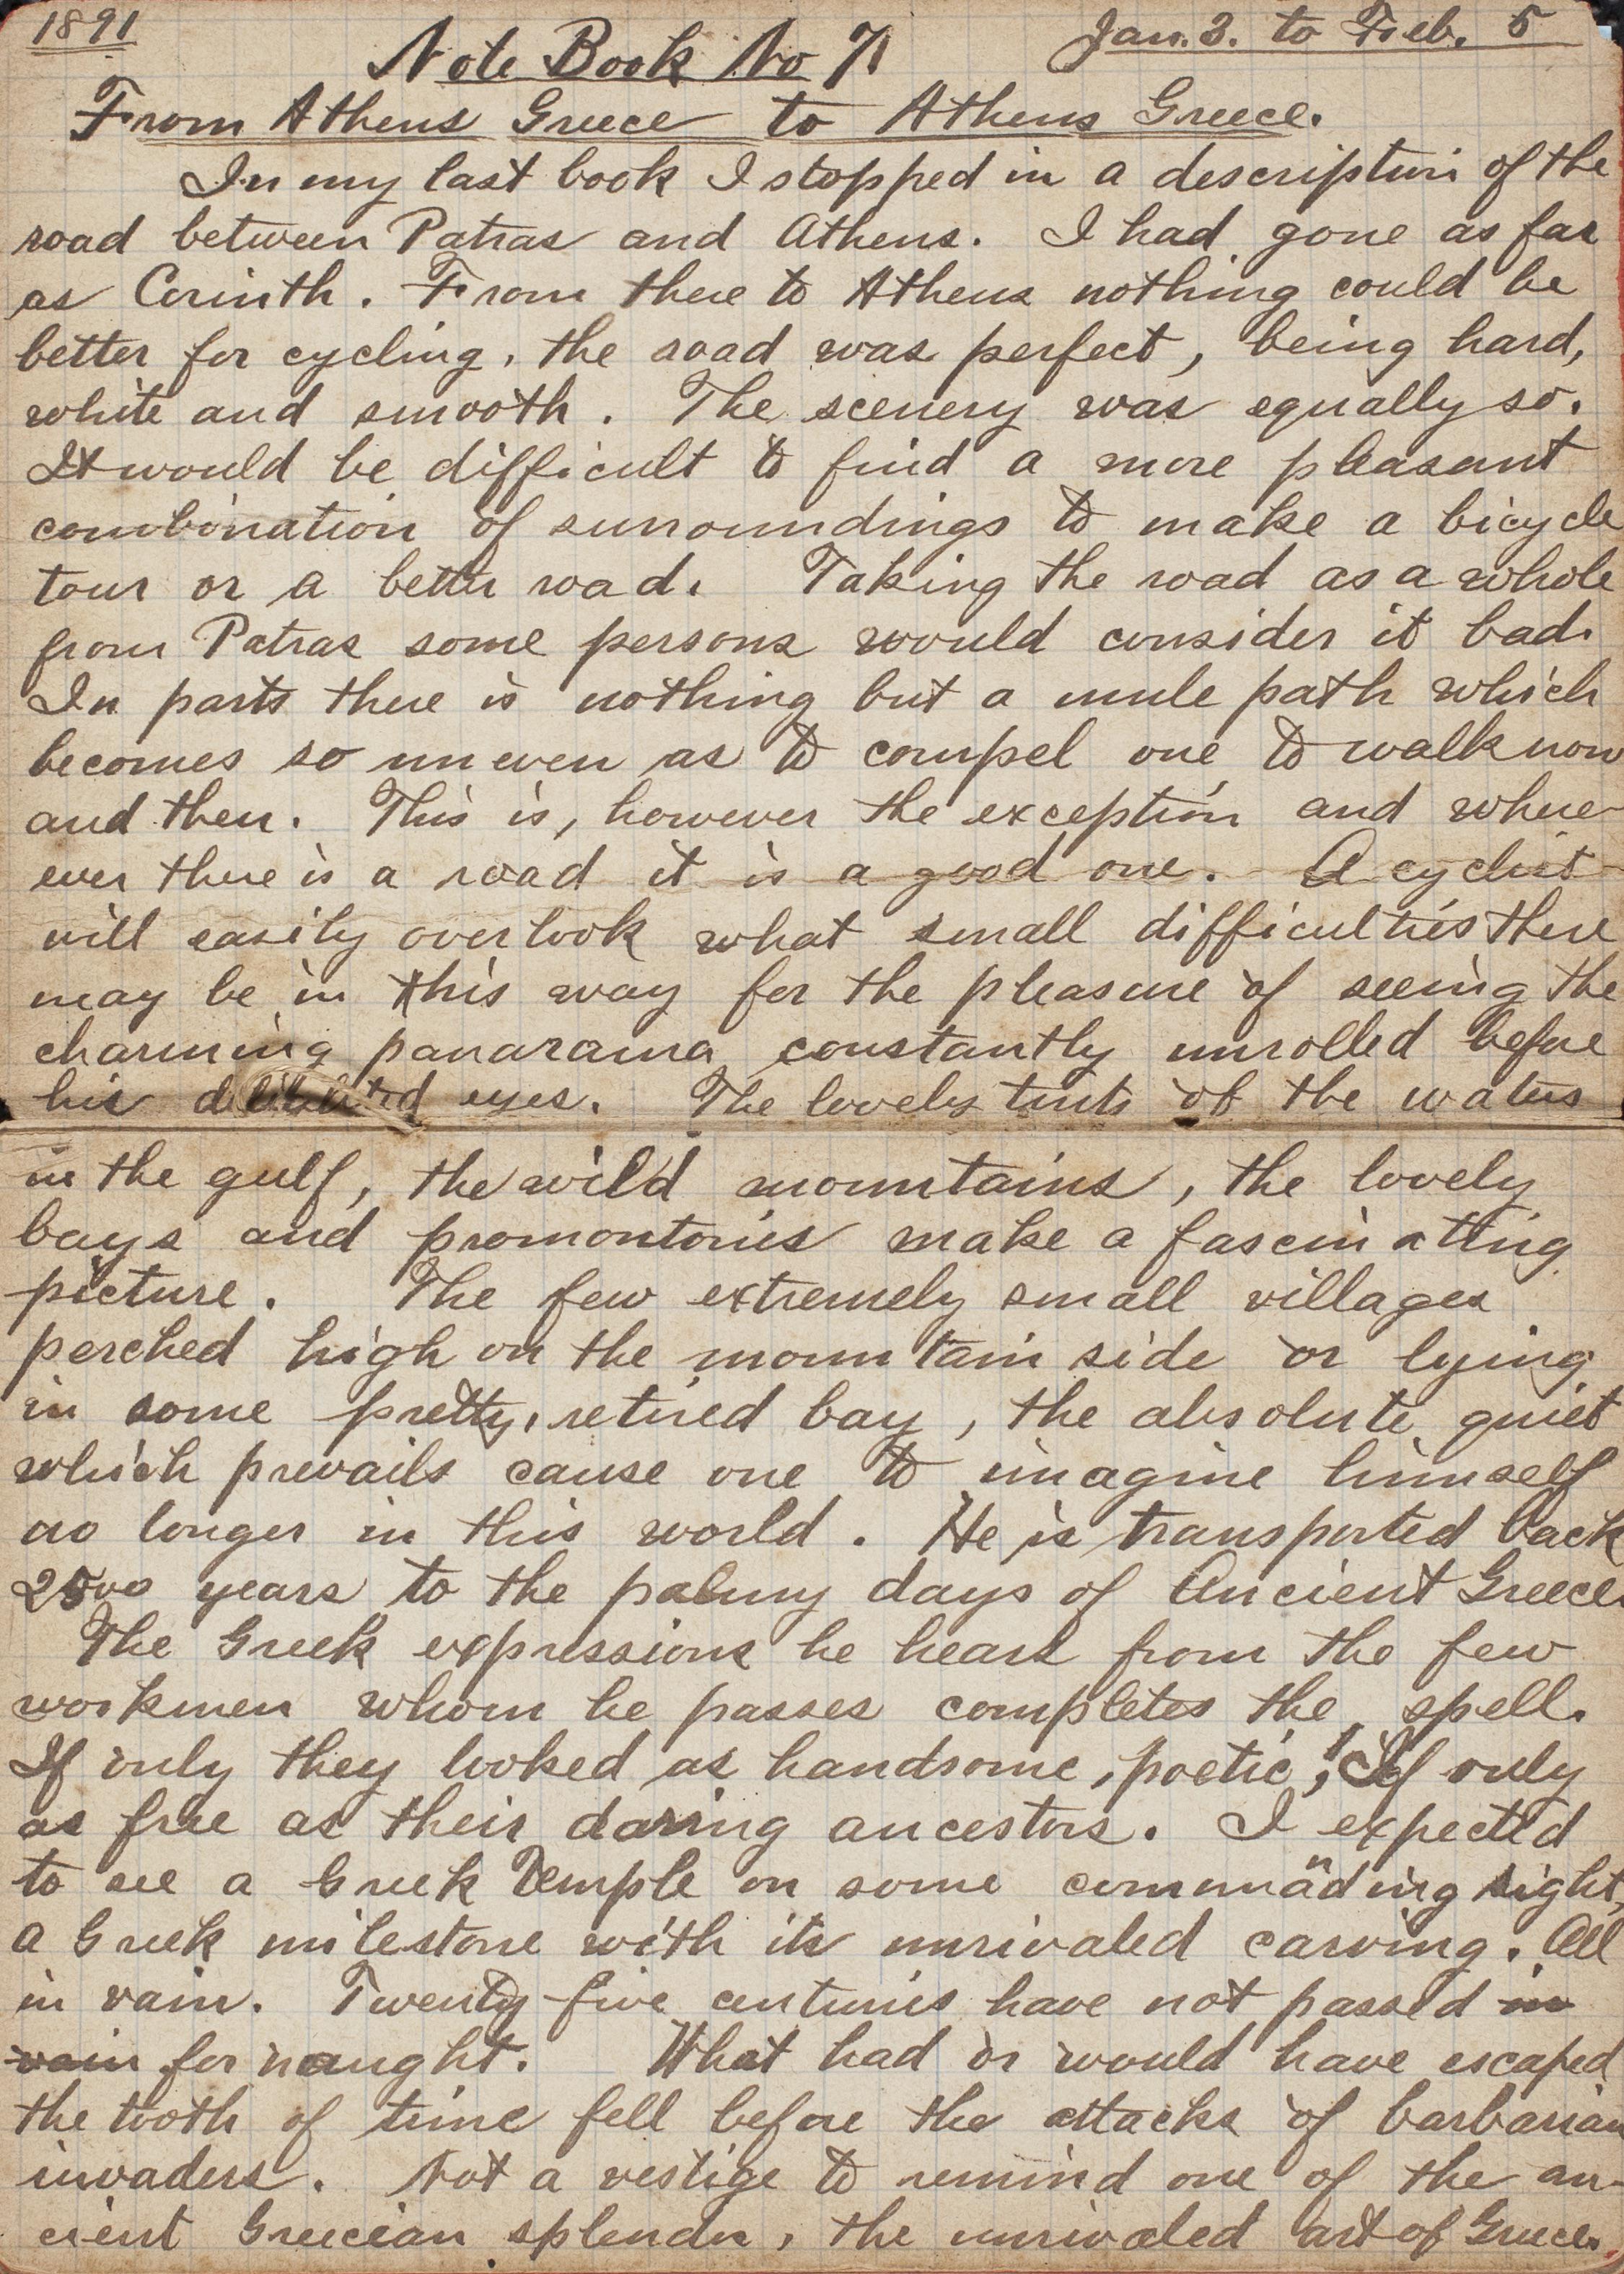 1891
Note Book No 7
Jan. 3. to Feb. 5
From Athens Greece to Athens Greece.
In my last book I stopped in a description of the
road between Patras and Athens. I had gone as far
as Corinth. From there to Athens nothing could be
better for cycling, the road was perfect, being hard,
white and smooth. The scenery was equally so.
It would be difficult to find a more pleasant
combination of surroundings to make a bicycle
tour or a better road. Taking the road as a whole
from Patras some persons would consider it bad.
In parts there is nothing but a mule path which
becomes so uneven as to compel one to walk now
and then. This is, however the exception and where
ever there is a road it is a good one. A cyclist
will easily overlook what small difficulties there
may be in this way for the pleasure of seeing the
charming panarama constantly unrolled before
his eyes. The lovely tints of the waters
in the gulf, the wild mountains, the lovely
bays and promontories make a fascinatting
picture. The few extremely small villages
perched high on the mountain side or lying
in some pretty, retired bay, the absolute quiet
which prevails cause one to imagine himself
no longer in this world. He is transported back
2500 years to the palmy days of Ancient Greece.
The Greek expressions he hears from the few
workmen whom he passes completes the spell.
If only they looked as handsome, poetic, If only
as free as their daring ancestors. I expected
to see a Greek Temple on some commanding hight,
a Greek milestone with its unrivaled carving. All
in vain. Twenty-five centuries have not passed in
vain for naught. What had or would have escaped
the tooth of time fell before the attacks of barbarian
invaders. Not a vestige to remind one of the an-
cient Greecian splendor, the unrivaled art of Greece.